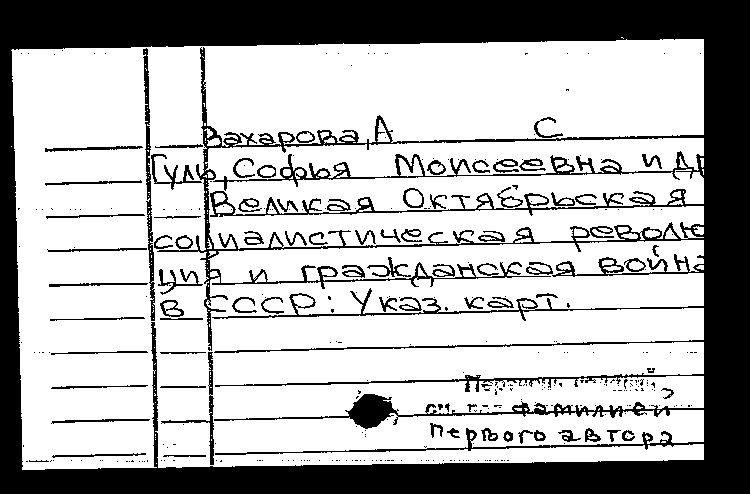 Захарова, А С
Гуль, Софья Моисеевна и др
Великая Октябрьская
социалистическая револю
ция и гражданская война
в СССР: Указ. карт.
см. под фамилией
первого автора